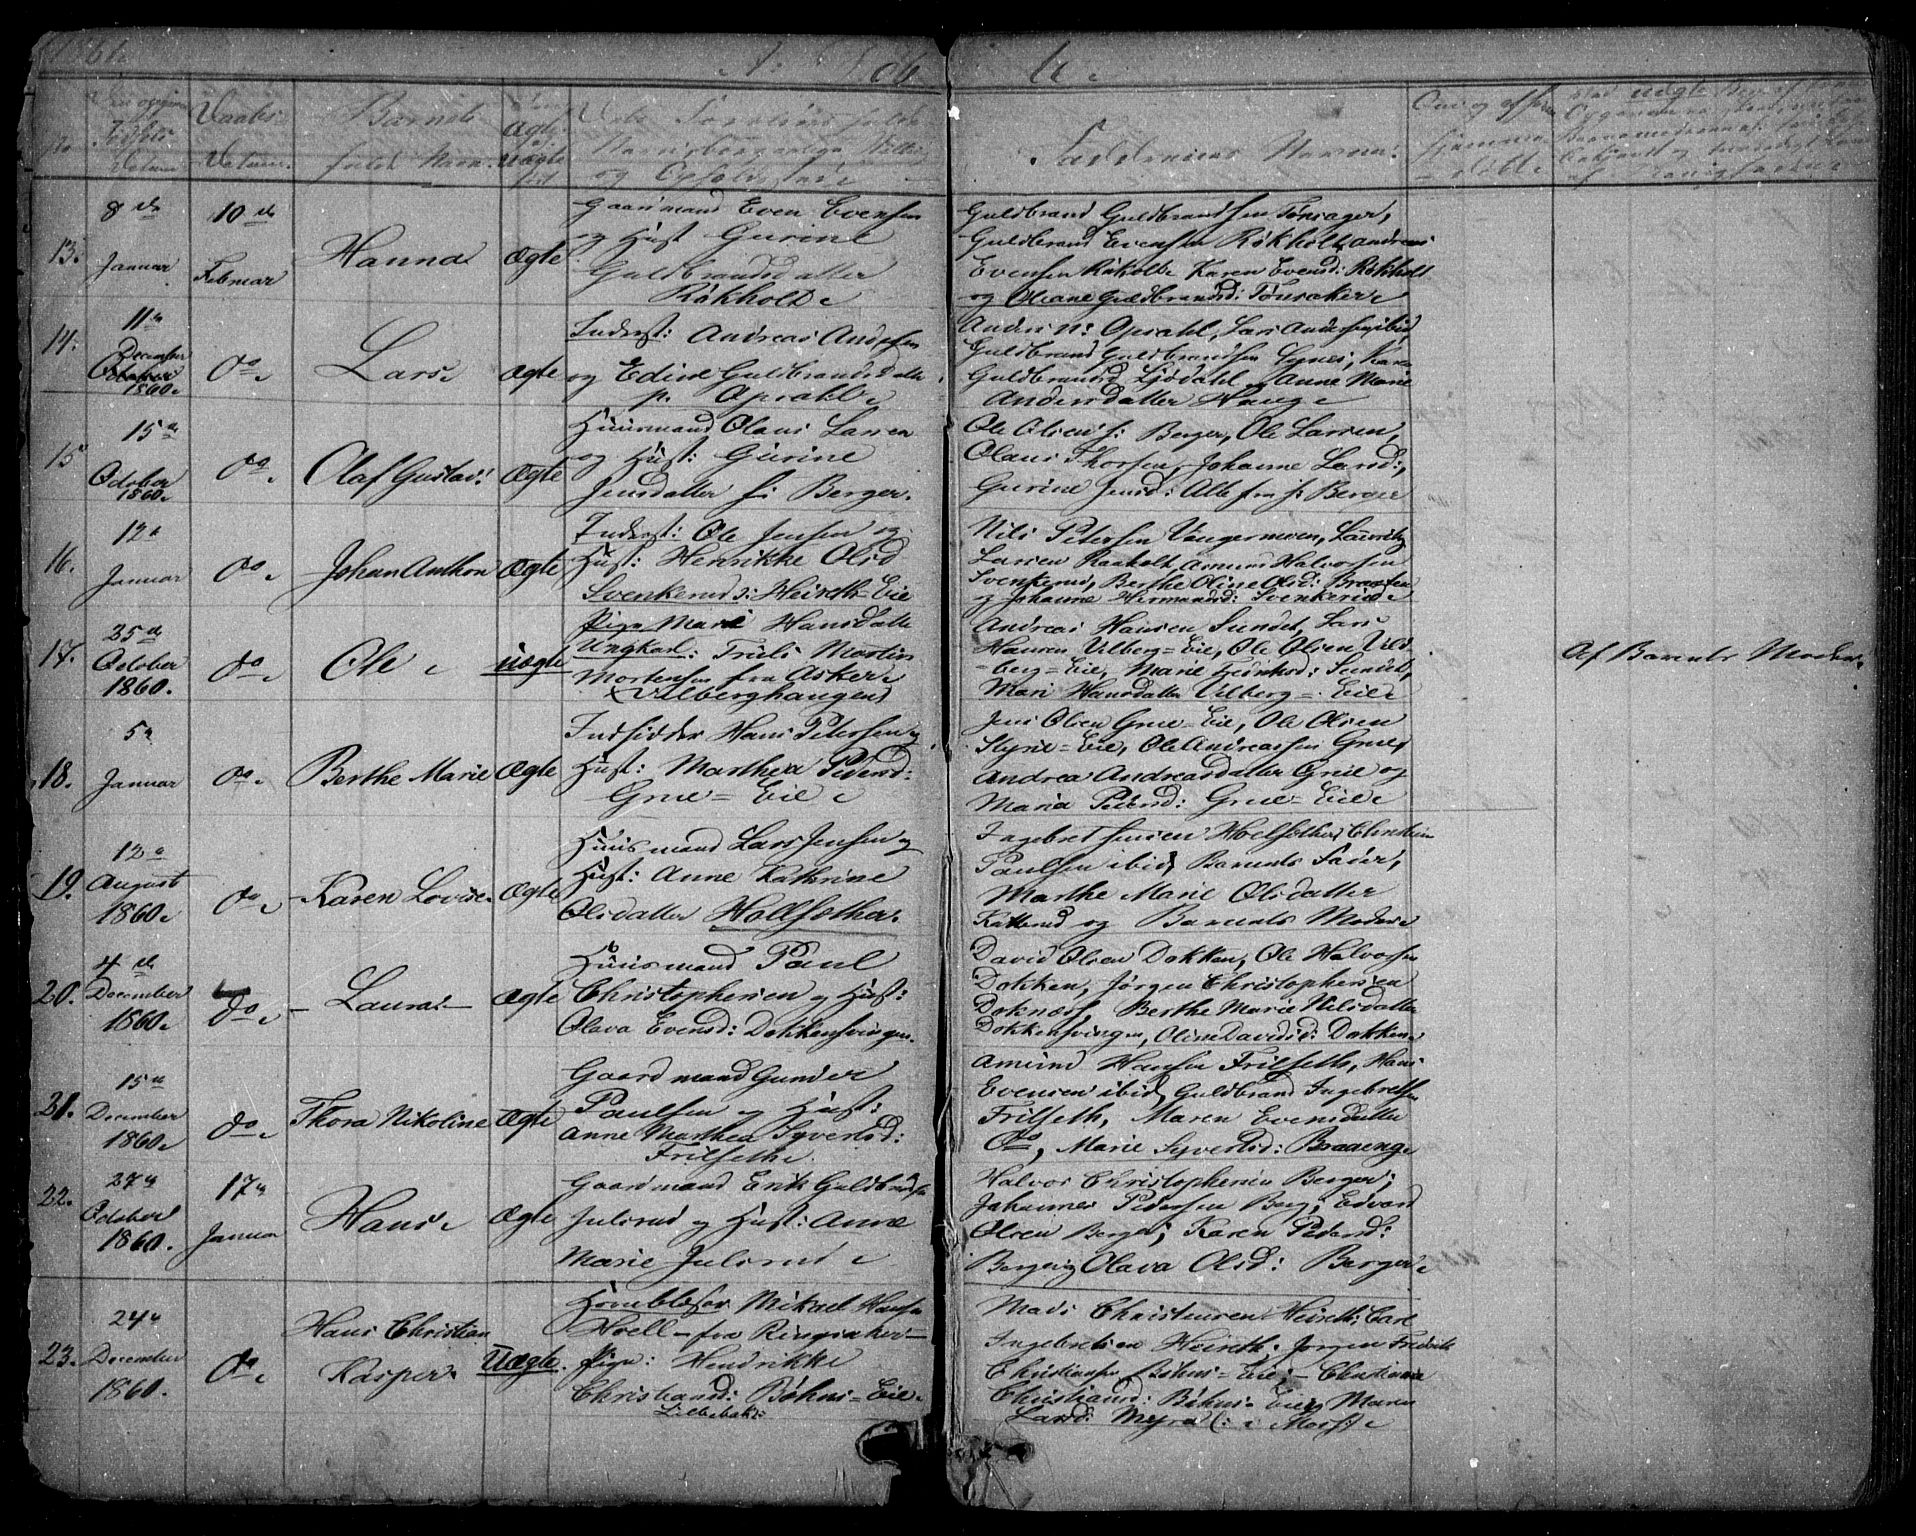 1861.
A. Døb te
No
Datum
Daabs Datum.
Barnets fulde Navn.
Ægte
uægte
og Opholdssted
Faddernes Navne.
13.
8de Januar
10de Februar
Hanna
Ægte
Gaardmand Even Evensen
og Hust Gurine
Guldbrandsdatter
Røkholt
Guldbrand Guldbrandsen Tønsager,
Guldbrand Evensen Røkholt, Andreas
Evensen Røkholt Karen Evensd: Røkholt
og Oleane Guldbrandsd: Tønsaker
14.
11te December 1860
do
Lars
Ægte
Inderst: Andreas Andersen
og Edine Guldbrandsdatter
p. Opsahl
Anders N: Opsahl, Lars Andersen ibid
Guldbrand Guldbrandsen
Guldbrandsd Anne Marie
Andersdatter Hauge
15
15de October 1860
do
Olaf Gustav:
Ægte
Huusmand Olaus Larsen
og Hust: Gurine
Jensdatter f: Berger.
Ole Olsen f: Berger, Ole Larsen,
Olaus Thorsen, Johanne Larsd:,
Gurine Jensd: Alle fra f: Berger
16.
12te Januar
do
Johan Anthon
Ægte
Inderst: Ole Jensen og
Hust: Henrikke Olsd
Svenkerud: Heireth-Eie
Nils Petersen Vangermoen, Lauritz
Larsen Raaholt Amund Halvorsen
Svenkerud, Berthe Oline Olsd: Braaten
og Johanne Hermandsd: Svenkerud
17.
25de October 1860.
do
Ole
uægte
Pige Mari Hansdatter
Ungkarl: Truls Martin
Mortensen fra Asker
(Vilberghaugen)
Andreas Hansen Sundet, Lars
Hansen Vilberg=Eie, Ole Olsen Vil
berg=Eie, Marie Sundet,
Mari Hansdatter Vilberg=Eie
Af Barnets Moder
18.
5te Januar
do
Berthe Marie
Ægte
Indsidder Hans Petersen og
Hust: Marthea Pedersd:
Grue=Eie
Jens Olsen Grue=Eie, Ole Olsen
Styrie=Eie, Ole Andreassen Grue,
Andrea Andreasdatter Grue og
Maria Pedersd: Grue=Eie
19.
12te August 1860
do
Karen Lovise
Ægte
Huusmand Lars Jensen og
Hust: Anne Kathrine
Olsdatter Holsæther.
Ingebret Jensen Holsæther Christian
Paulsen ibid, Barnets Fader,
Marthe Marie Olsdatter
Katterud og Barnets Moder
20.
4de December 1860
do
Laura
Ægte
Huusmand Paul
Christophersen og Hust:
Olava Evensd: Dokkensvingen
David Olsen Dokken, Ole Halvorsen
Dokken, Jørgen Christophersen
Doknæss, Berthe Marie Nilsdatter
Dokkensvingen, Oline Davidsd: Dokken
21.
15de December 1860
do
Thora Nikoline
Ægte
Gaardmand Gunder
Paulsen og Hust:
Anne Marthea Syversd:
Frilseth
Amund Hansen Frilseth, Hans
Evensen ibid, Guldbrand Ingebretsen
Frilseth, Maren Evensdatter
do, Marie Syversd: Braaeng
22.
27de October 1860.
17de Januar
Hans
Ægte
Gaardmand Erik Guldbrandsen
Julsrud og Hust: Anne
Marie Julsrud
Halvor Christophersen Berger,
Johannes Pedersen Berg, Edvard
Olsen Berger, Karen Pedersd:
Berg og Olava Olsd: Berger
23.
24de December 1860.
do
Hans Christian Kasper.
uægte.
Hornblæser Mikael Hansen
Hoell fra Ringsaker
Pige: Hendrikke
Christiansd: Bøhns=Eie
Lillebak:
Mads Christensen Heireth: Carl
Ingebretsen Heireth; Jørgen Fredrik
Christiansen Bøhns=Eie; Christiane
Christiansd: Bøhns Eie, Maren
Larsd: Myra